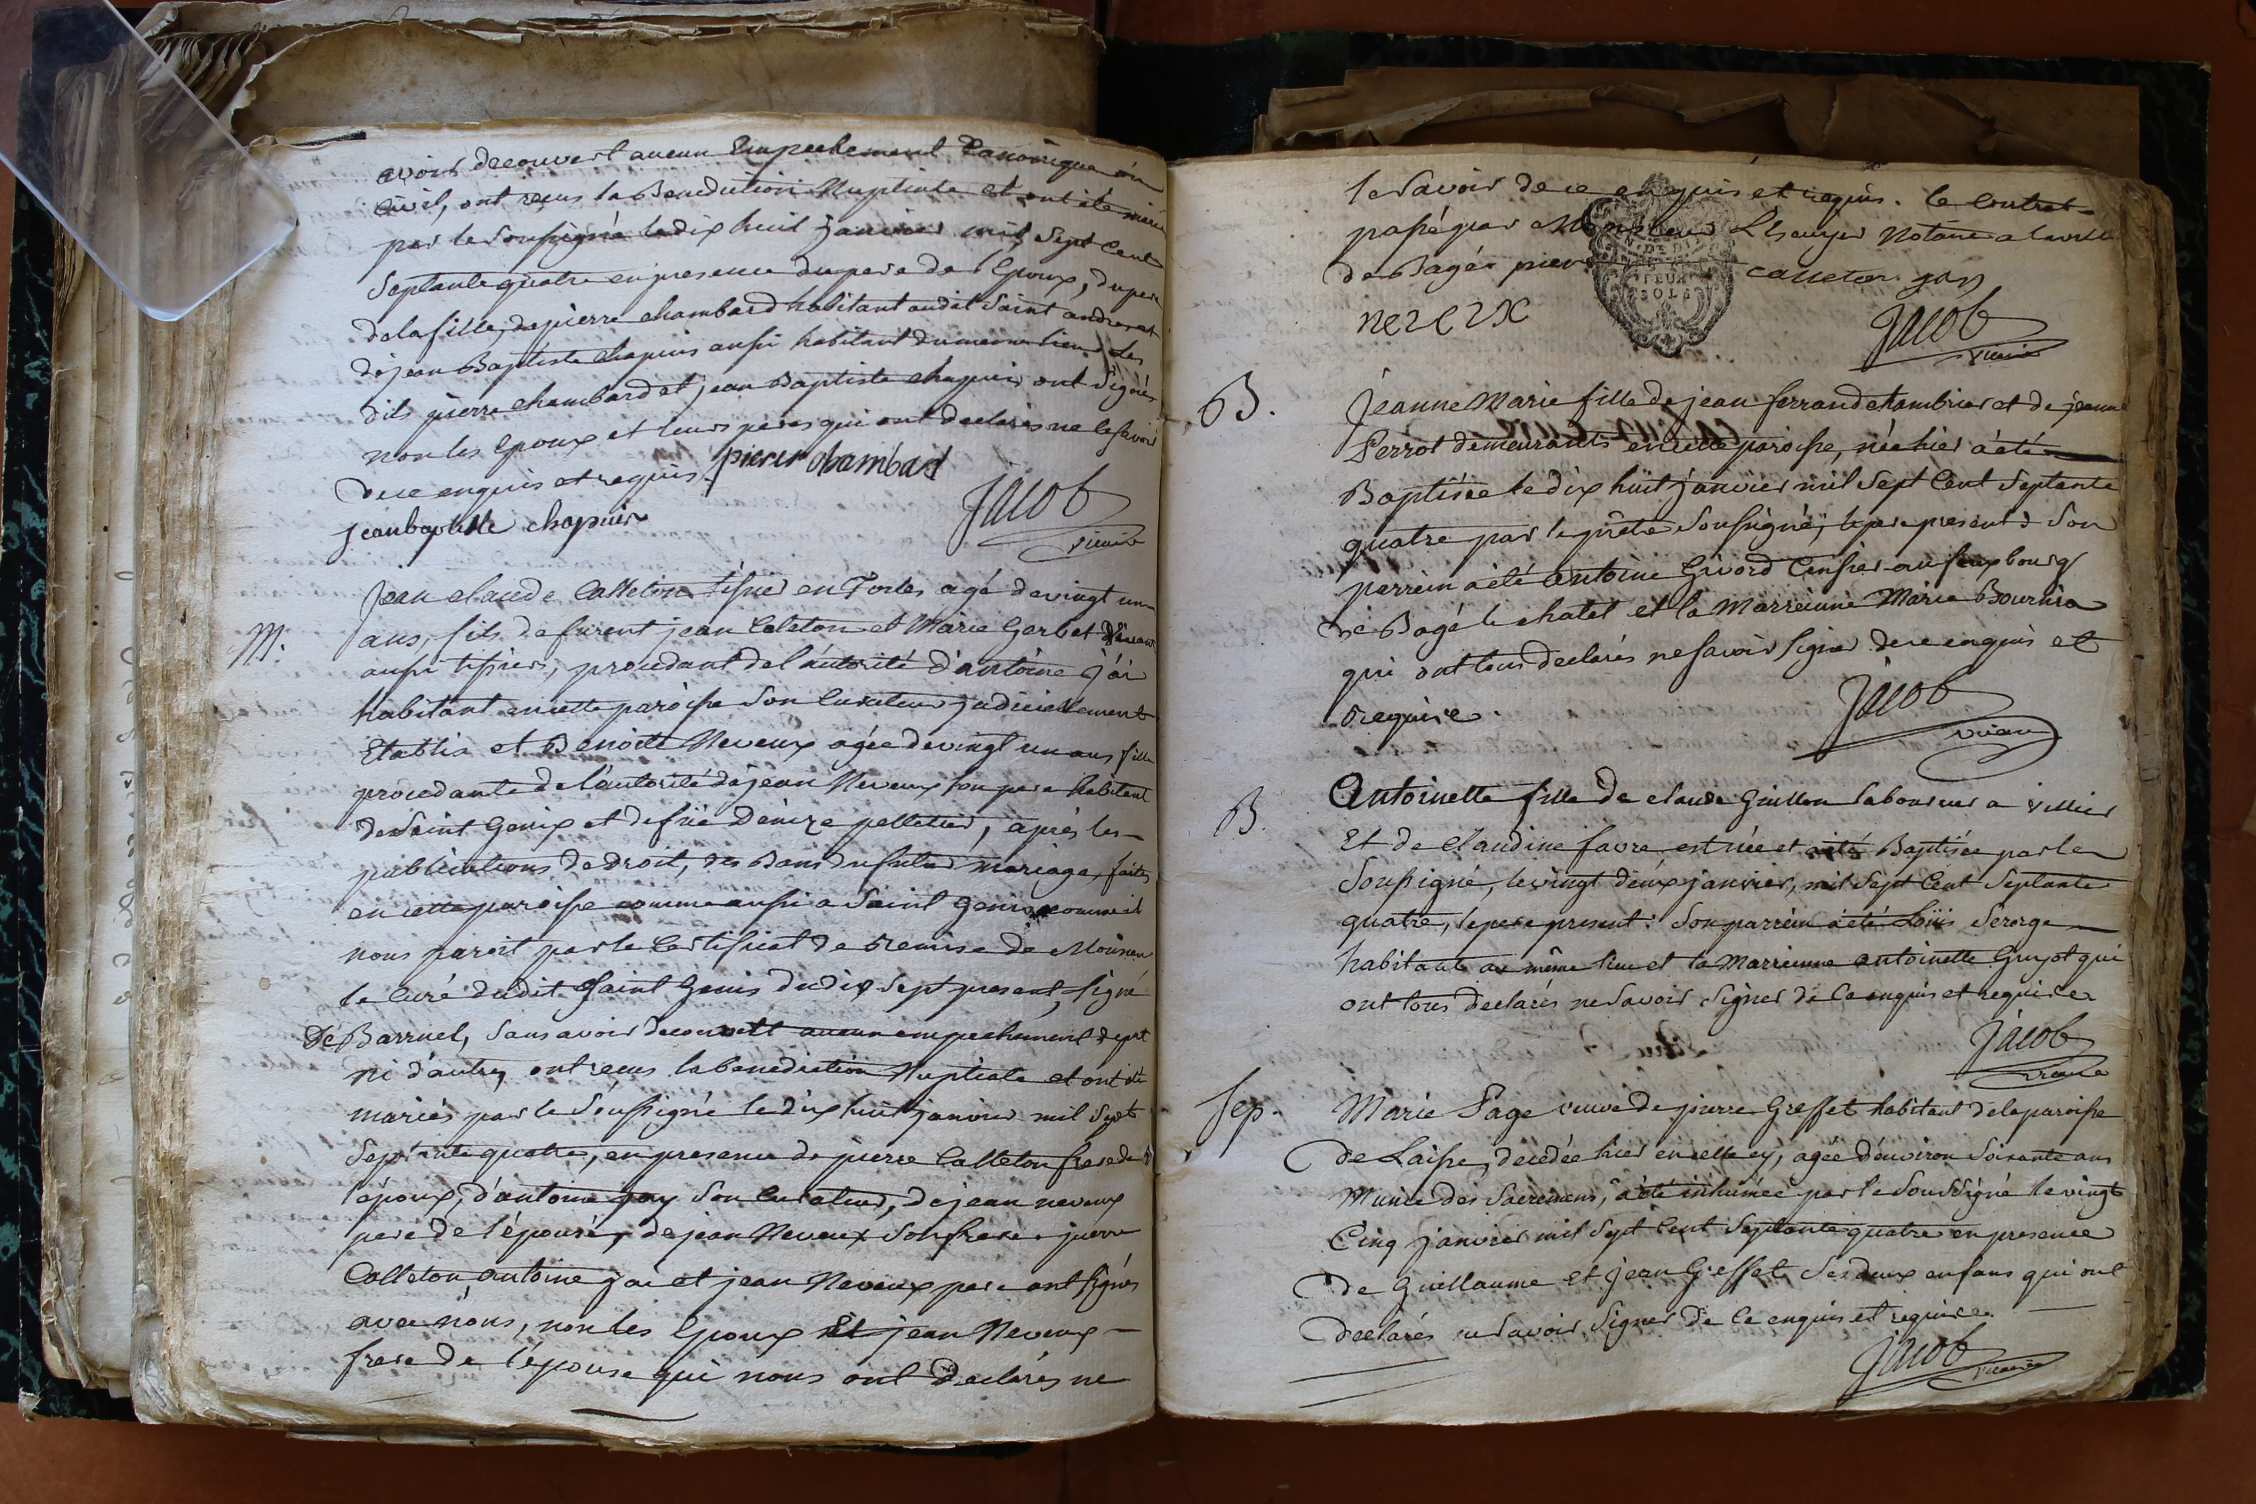 avoir decouvert aucun Empechement Canonique ou
Civil, ont reçus la Benediction Nuptiale et ont été mariés
par le Soussigné le dix huit janvier mil Sept Cent
Septante quatre en presence du pere de l'Epoux, du pere
de la fille, de pierre chambard habitant audit Saint andre, et
de jean Baptiste chapuis aussi habitant du meme lieu. Les
dits pierre chambard et jean Baptiste chapuis ont Signés
non les Epoux et leurs peres qui ont declarés ne le Savoir
de ce enquis et requis. pierre chambard
jean baptiste chapuis
Jacob
vicaire
M.
Jean claude Calleton tissier en Toiles agé de vingt un
ans, fils de furent jean Caleton et Marie Gerbet
aussi tissiers, procedant de l'autorité d'antoine j'ai
habitant en cette paroisse Son Curateur judiciellement
Etablis et Benoite Neveux agée de vingt un ans fille
procedante de l'autorité de jean Neveux Son pere habitant
de Saint Genix et de füe Dénize pelletier, après les
publications de Droit, des Bans du futur mariage, faites
en cette paroisse comme aussi a Saint Genis comme il
nous paroit par le Certificat de remise de Monsieur
le Curé dudit Saint Genis du dix Sept present, signé
De Barruel, Sans avoir decouvert aucun empechement de part
ni d'autre, ont recus la benediction Nuptiale et ont été
mariés par le Soussigné le dix huit janvier mil Sept
Septante quatre, en presence de pierre Calleton frere de
l'époux, d'antoine gay Son Curateur, de jean neveux
pere de l'épouse, de jean Neveux Son frere. pierre
Calleton antoine jai et jean Neveux pere ont Signés
avec nous, non les Epoux Et jean Neveux
frere de l'épouse qui nous ont Declarés ne
le Savoir de ce enquis et requis. le Contrat
passé par Monsieur Notaire a la ville
de Bagé. pierre calleton gay
neveux
Jacob
vicaire
B.
Jeanne Marie fille de jean ferrand et de jeanne
Perrot demeurants en cette paroisse, née hier a été
Baptisée le dix huit janvier mil Sept Cent Septante
quatre par le prêtre Soussigné, le pere present. Son
parrein a été antoine Givord au fauxbourg
de Bagé le chatel et la Marreinne Marie
qui ont tous declarés ne Savoir Signer de ce enquis et
requise.
Jacob
vicaire
B.
Antoinette fille de claude Guillon laboureur a villier
Et de Claudine favre est née et a été Baptisée par le
Soussigné, le vingt deux janvier, mil Sept Cent Septante
quatre, le pere present. Son parrein a été Loüis Serorge
habitant au même lieu et la Marreinne antoinette Guyot qui
ont tous declarés ne Savoir Signer de Ce enquis et requise
Jacob
vicaire
Sep.
Marie Page veuve de pierre Greffet habitant de la paroisse
de Laisse, decedée hier en celle cy, agée d'environ Soixante ans
Munie des Sacremens, a été inhumée par le Soussigné le vingt
Cinq janvier mil Sept Cent Septante quatre en presence
De Guillaume et Jean Greffet Ses deux enfans qui ont
Declarés ne Savoir Signer de Ce enquis et requise.
Jacob
vicaire